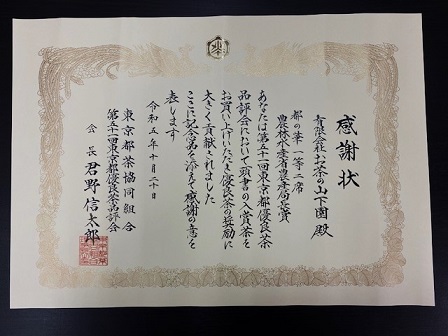 感謝状
有限会社お茶の山下園殿
都の華一等二席
農林水産省農産局長賞
あなたは第五十一回東京都優良茶
品評会において頭書の入賞茶を
お買い上げいただき優良茶の奨励に
大きく貢献されました
ここに記念品を添えて感謝の意を
表します
令和五年十月二十日
東京都茶協同組合
第五十一回東京都優良茶品評会
会長 君野信太郎